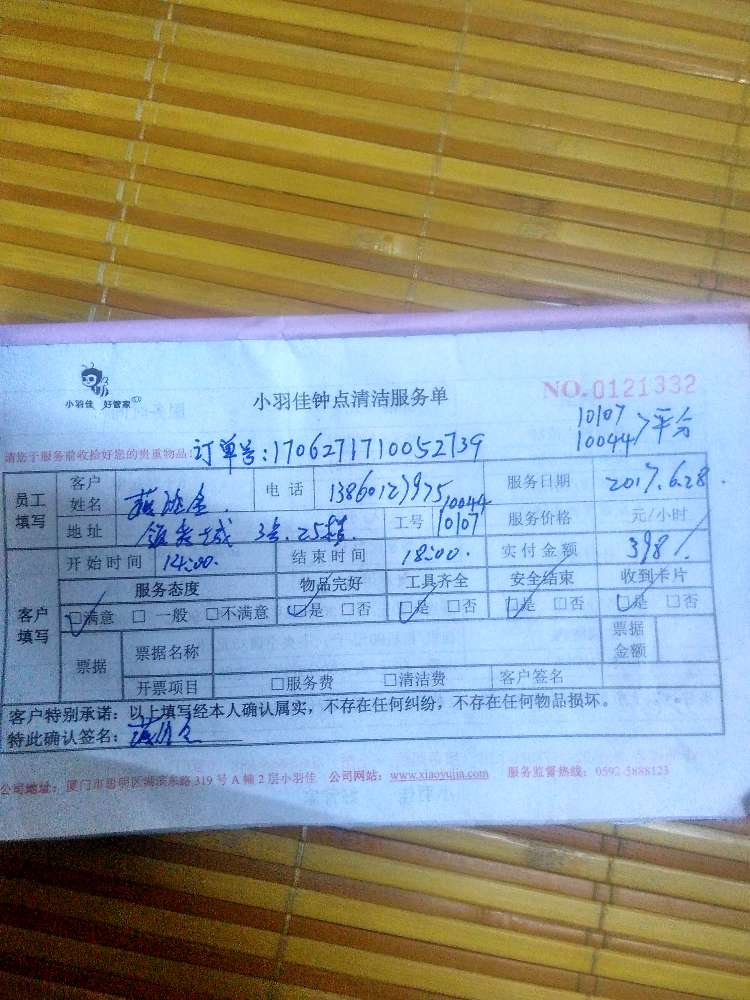 小羽佳 好管家
小羽佳钟点清洁服务单
NO.0121332
10107
10044 平分
请您于服务前收拾好您的贵重物品!
订单号:1706271710052739
员工填写 客户姓名 电话 服务日期 2017.6.28.
地址 3号.25楼. 工号 10044 10107 服务价格 元/小时
开始时间 14:00. 结束时间 18:00. 实付金额 398/
客户填写 服务态度 物品完好 工具齐全 安全结束 收到卡片
□满意 □一般 □不满意 □是 □否 □是 □否 □是 □否 □是 □否
票据 票据名称 票据金额
开票项目 □服务费 □清洁费 客户签名
客户特别承诺:以上填写经本人确认属实,不存在任何纠纷,不存在任何物品损坏。
特此确认签名:
公司地址:厦门市思明区湖滨东路 319 号 A 幢 2 层小羽佳 公司网站:www.xiaoyujia.com 服务监督热线:0592-5888123